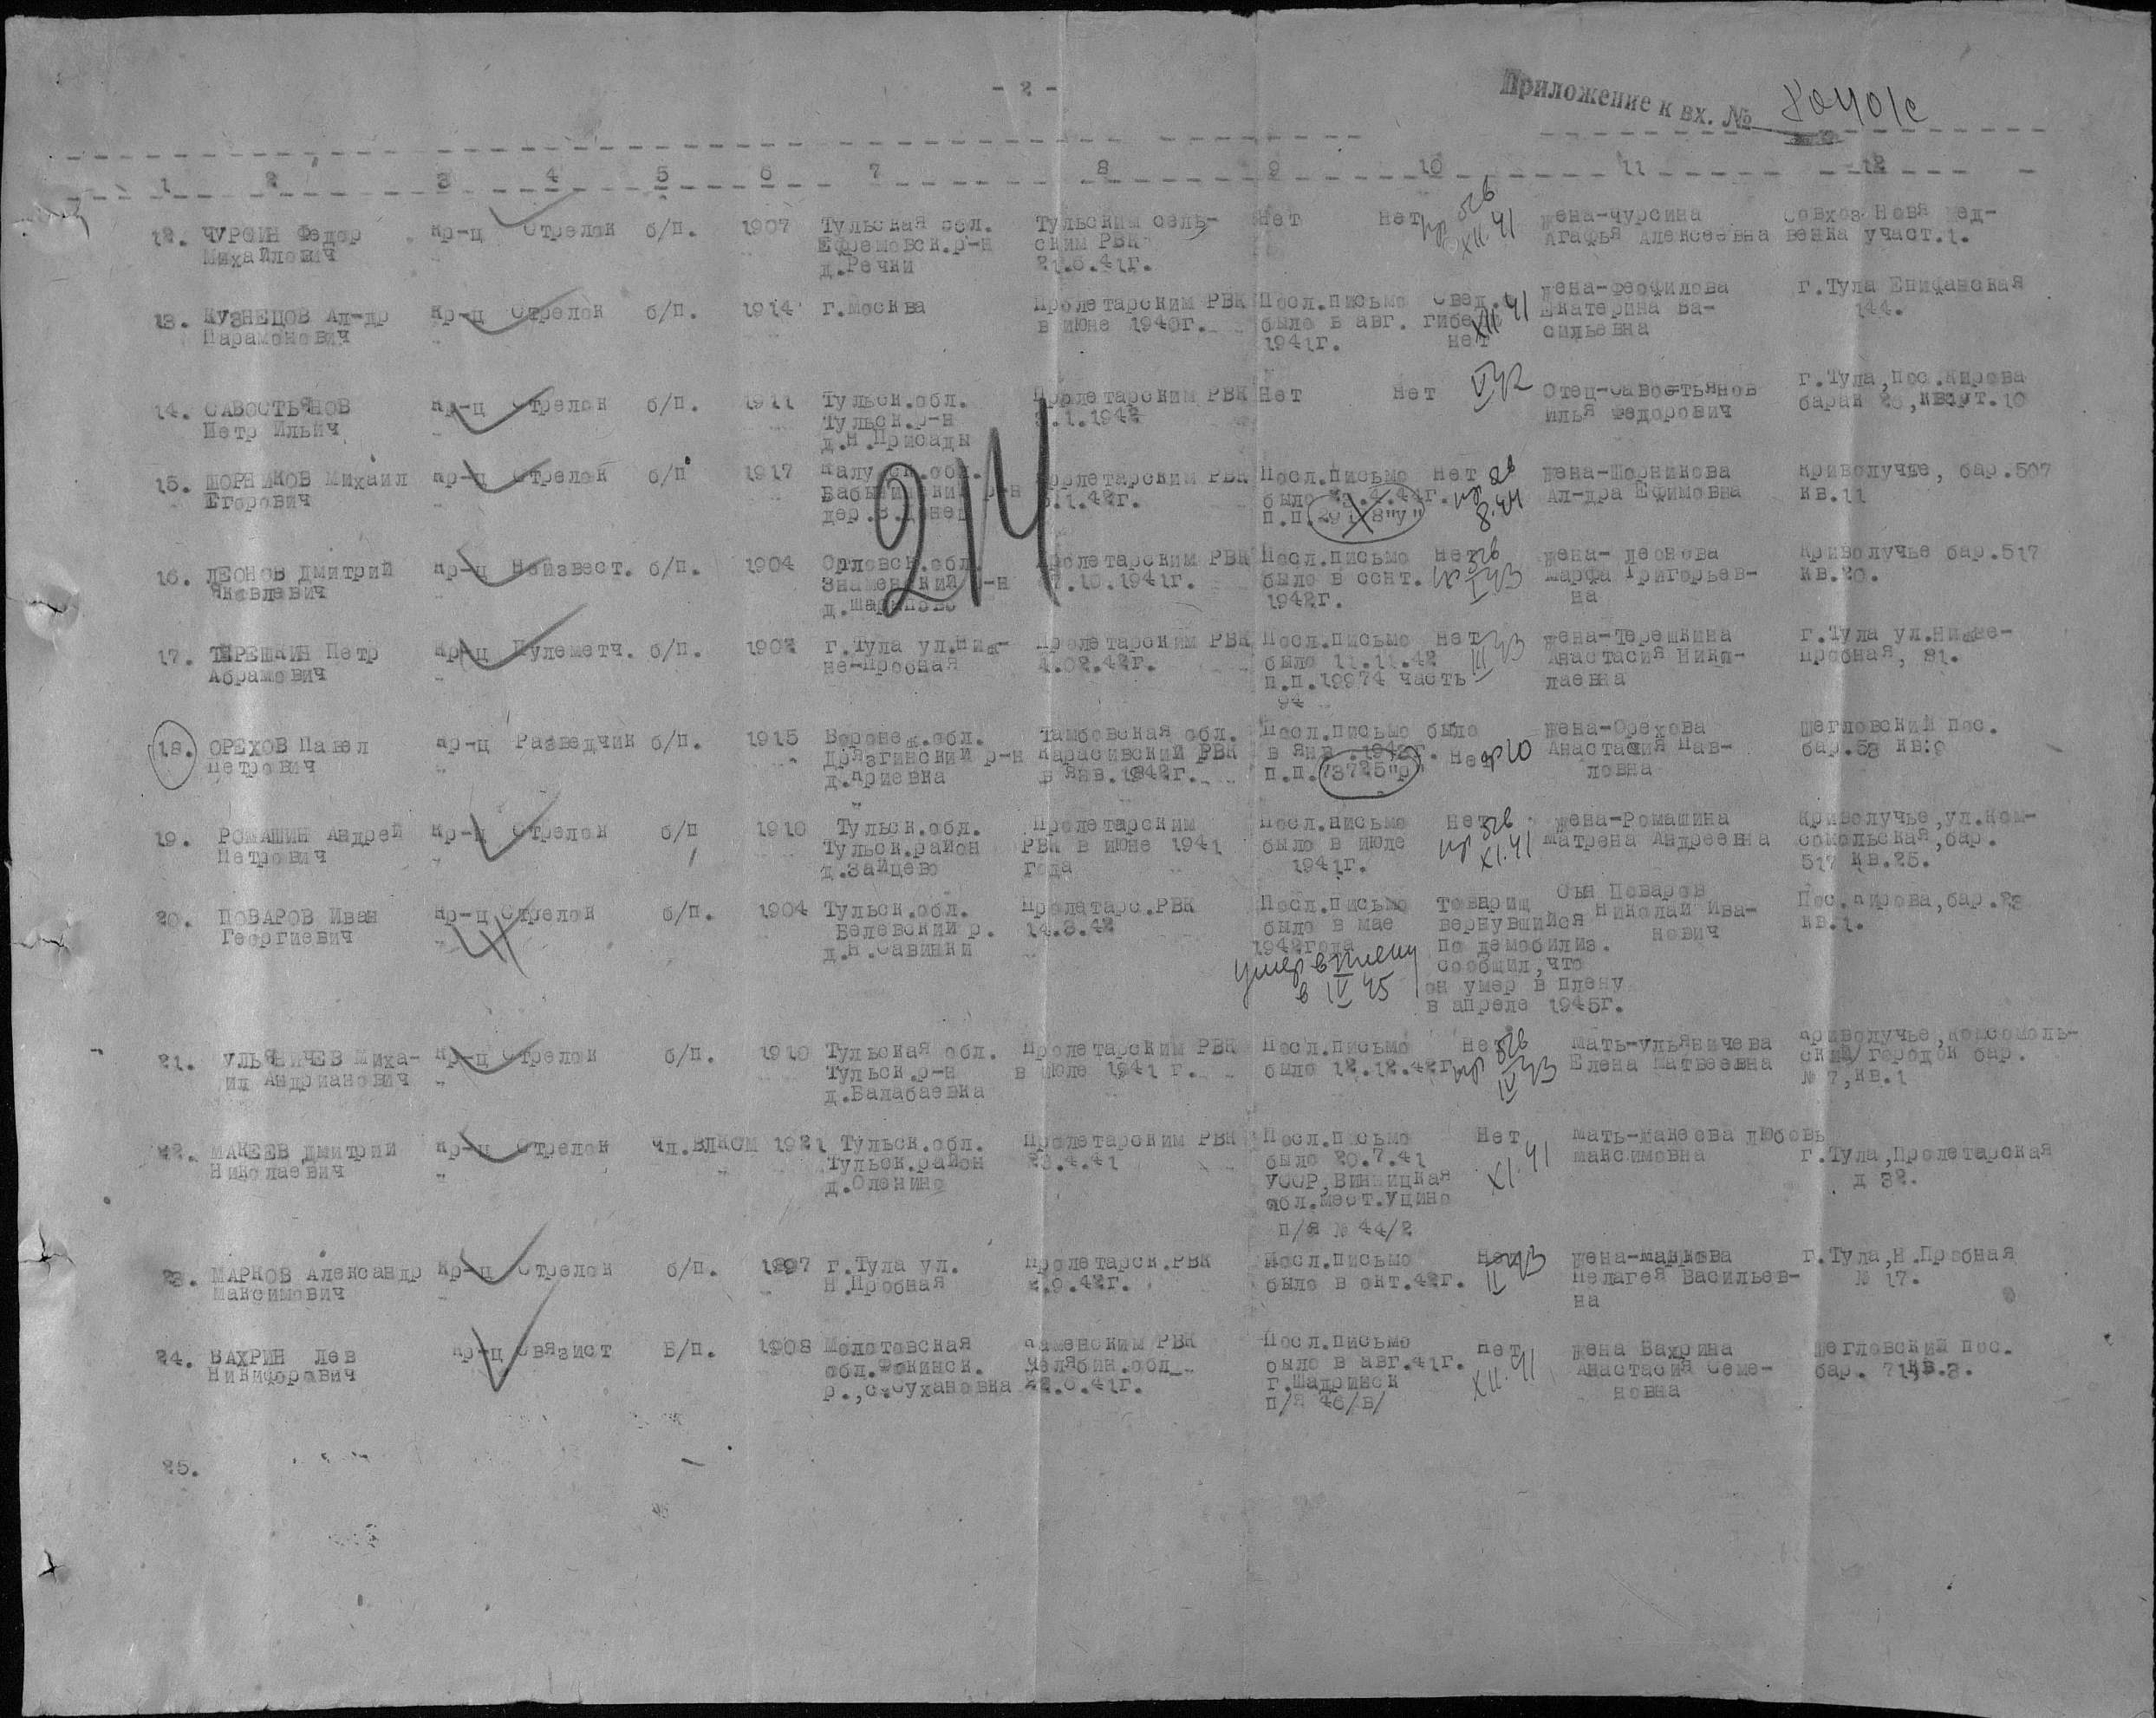 - 2 -
Приложение к вх. №
1 2 3 4 5 6 7 8 9 10 11 12
12. ЧУРСИН Федор кр-ц Стрелок б/п. 1907 Тульская обл. Тульским сель- Нет Нет жена-Чурсина Совхоз Новая Мед-
Михайлович Ефремовск.р-н ским РВК XII.41 Агафья Алексеевна венка участ.1.
д.Речки 41г.
13. КУЗНЕЦОВ Ал-др кр-ц Стрелок б/п. 1914 г.Москва Пролетарским РВК Посл.письмо Свед. жена-Феофилова г.Тула Епифанская
Парамонович " в июне 1940г. было в авг. гибели XII 41 Екатерина Ва- 144.
1941г. нет сильевна
14. САВОСТЬЯНОВ кр-ц Стрелок б/п. 1911 Тульск.обл. Пролетарским РВК Нет Нет V 42 Отец-Савостьянов г.Тула,пос.Кирова
Петр Ильич " Тульск.р-н 1.1942 Илья Федорович барак 26,кварт.10
д.Н.Присады
214
15. ШОРНИКОВ Михаил кр-ц Стрелок б/п 1917 обл. Пролетарским РВК Посл.письмо Нет жена-Шорникова Криволучье, бар.507
Егорович " р-н 1.42г. было 8.44 Ал-дра Ефимовна кв.11
дер. п.п. "У"
16. ЛЕОНОВ Дмитрий кр-ц Неизвест. б/п. 1904 Орловск.обл. Пролетарским РВК Посл.письмо Нет жена- Леонова Криволучье бар.517
Яковлевич Знаменский р-н 10.1941г. было в сент. I 43 Марфа Григорьев- кв.20.
д. 1942г. на
17. ТЕРЕШКИН Петр кр-ц Пулеметч. б/п. 1902 г.Тула ул.Ниж- Пролетарским РВК Посл.письмо Нет жена-Терешкина г.Тула ул.Нижне-
Абрамович " не-Пробная 02.42г. было 11.11.42 III 43 Анастасия Нико- Пробная, 31.
п.п.19974 часть лаевна
94
18. ОРЕХОВ Павел кр-ц Разведчик б/п. 1915 Воронеж.обл. Тамбовская обл. Посл.письмо было жена-Орехова Щегловский пос.
Петрович " Дрязгинский р-н Карасивский РВК в янв. 1943г. Нет Анастасия Пав- бар.53 кв:9
в янв.1942г. п.п. "Р" ловна
19. РОМАШИН Андрей кр-ц Стрелок б/п 1910 Тульск.обл. Пролетарским Посл.письмо Нет жена-Ромашина Криволучье,ул.Ком-
Петрович " Тульск.район РВК в июне 1941 было в июле XI.41 Матрена Андреевна сомольская,бар.
д.Зайцево года 1941г. 517 кв.25.
20. ПОВАРОВ Иван кр-ц Стрелок б/п. 1904 Тульск.обл. Пролетарс.РВК Посл.письмо Товарищ Сын Поваров Пос.Кирова,бар.23
Георгиевич " Белевский р. 14.3.42 было в мае вернувшийся Николай Ива- кв.1.
д.Н.Савинки 1942года по демобилиз. нович
умер в плену сообщил,что
в IV 45 он умер в плену
в апреле 1945г.
21. УЛЬЯНИЧЕВ Миха- кр-ц Стрелок б/п. 1910 Тульская обл. Пролетарским РВК Посл.письмо Нет Мать-Ульяничева Криволучье,Комсомоль-
ил Андрианович " Тульск.р-н в июле 1941 г. было 12.12.42г. IV 43 Елена Матвеевна ский городок бар.
д.Балабаевка № 7,кв.1
22. МАКЕЕВ Дмитрий кр-ц Стрелок чл.ВЛКСМ 1921 Тульск.обл. Пролетарским РВК Посл.письмо Нет Мать-Макеева Любовь
Николаевич " Тульск.район 23.4.41 было 20.7.41 XI.41 Максимовна г.Тула,Пролетарская
д.Оленино УССР,Винницкая д 32.
обл.мест.Уцино
п/я № 44/2
23. МАРКОВ Александр кр-ц Стрелок б/п. 1897 г.Тула ул. Пролетарск.РВК Посл.письмо Нет жена-Маркова г.Тула,Н.Пробная
Максимович " Н.Пробная 9.42г. было в окт.42г. II 43 Пелагея Васильев- № 17.
на
24. ВАХРИН Лев кр-ц Связист Б/п. 1908 Молотовская Каменским РВК Посл.письмо нет жена Вахрина Щегловский пос.
Никифорович обл.Фокинск. Челябин.обл. было в авг.41г. XII.41 Анастасия Семе- бар. 71кв.3.
р.,с.Сухановка 41г. г.Шадринск новна
п/я 46/в/
25.